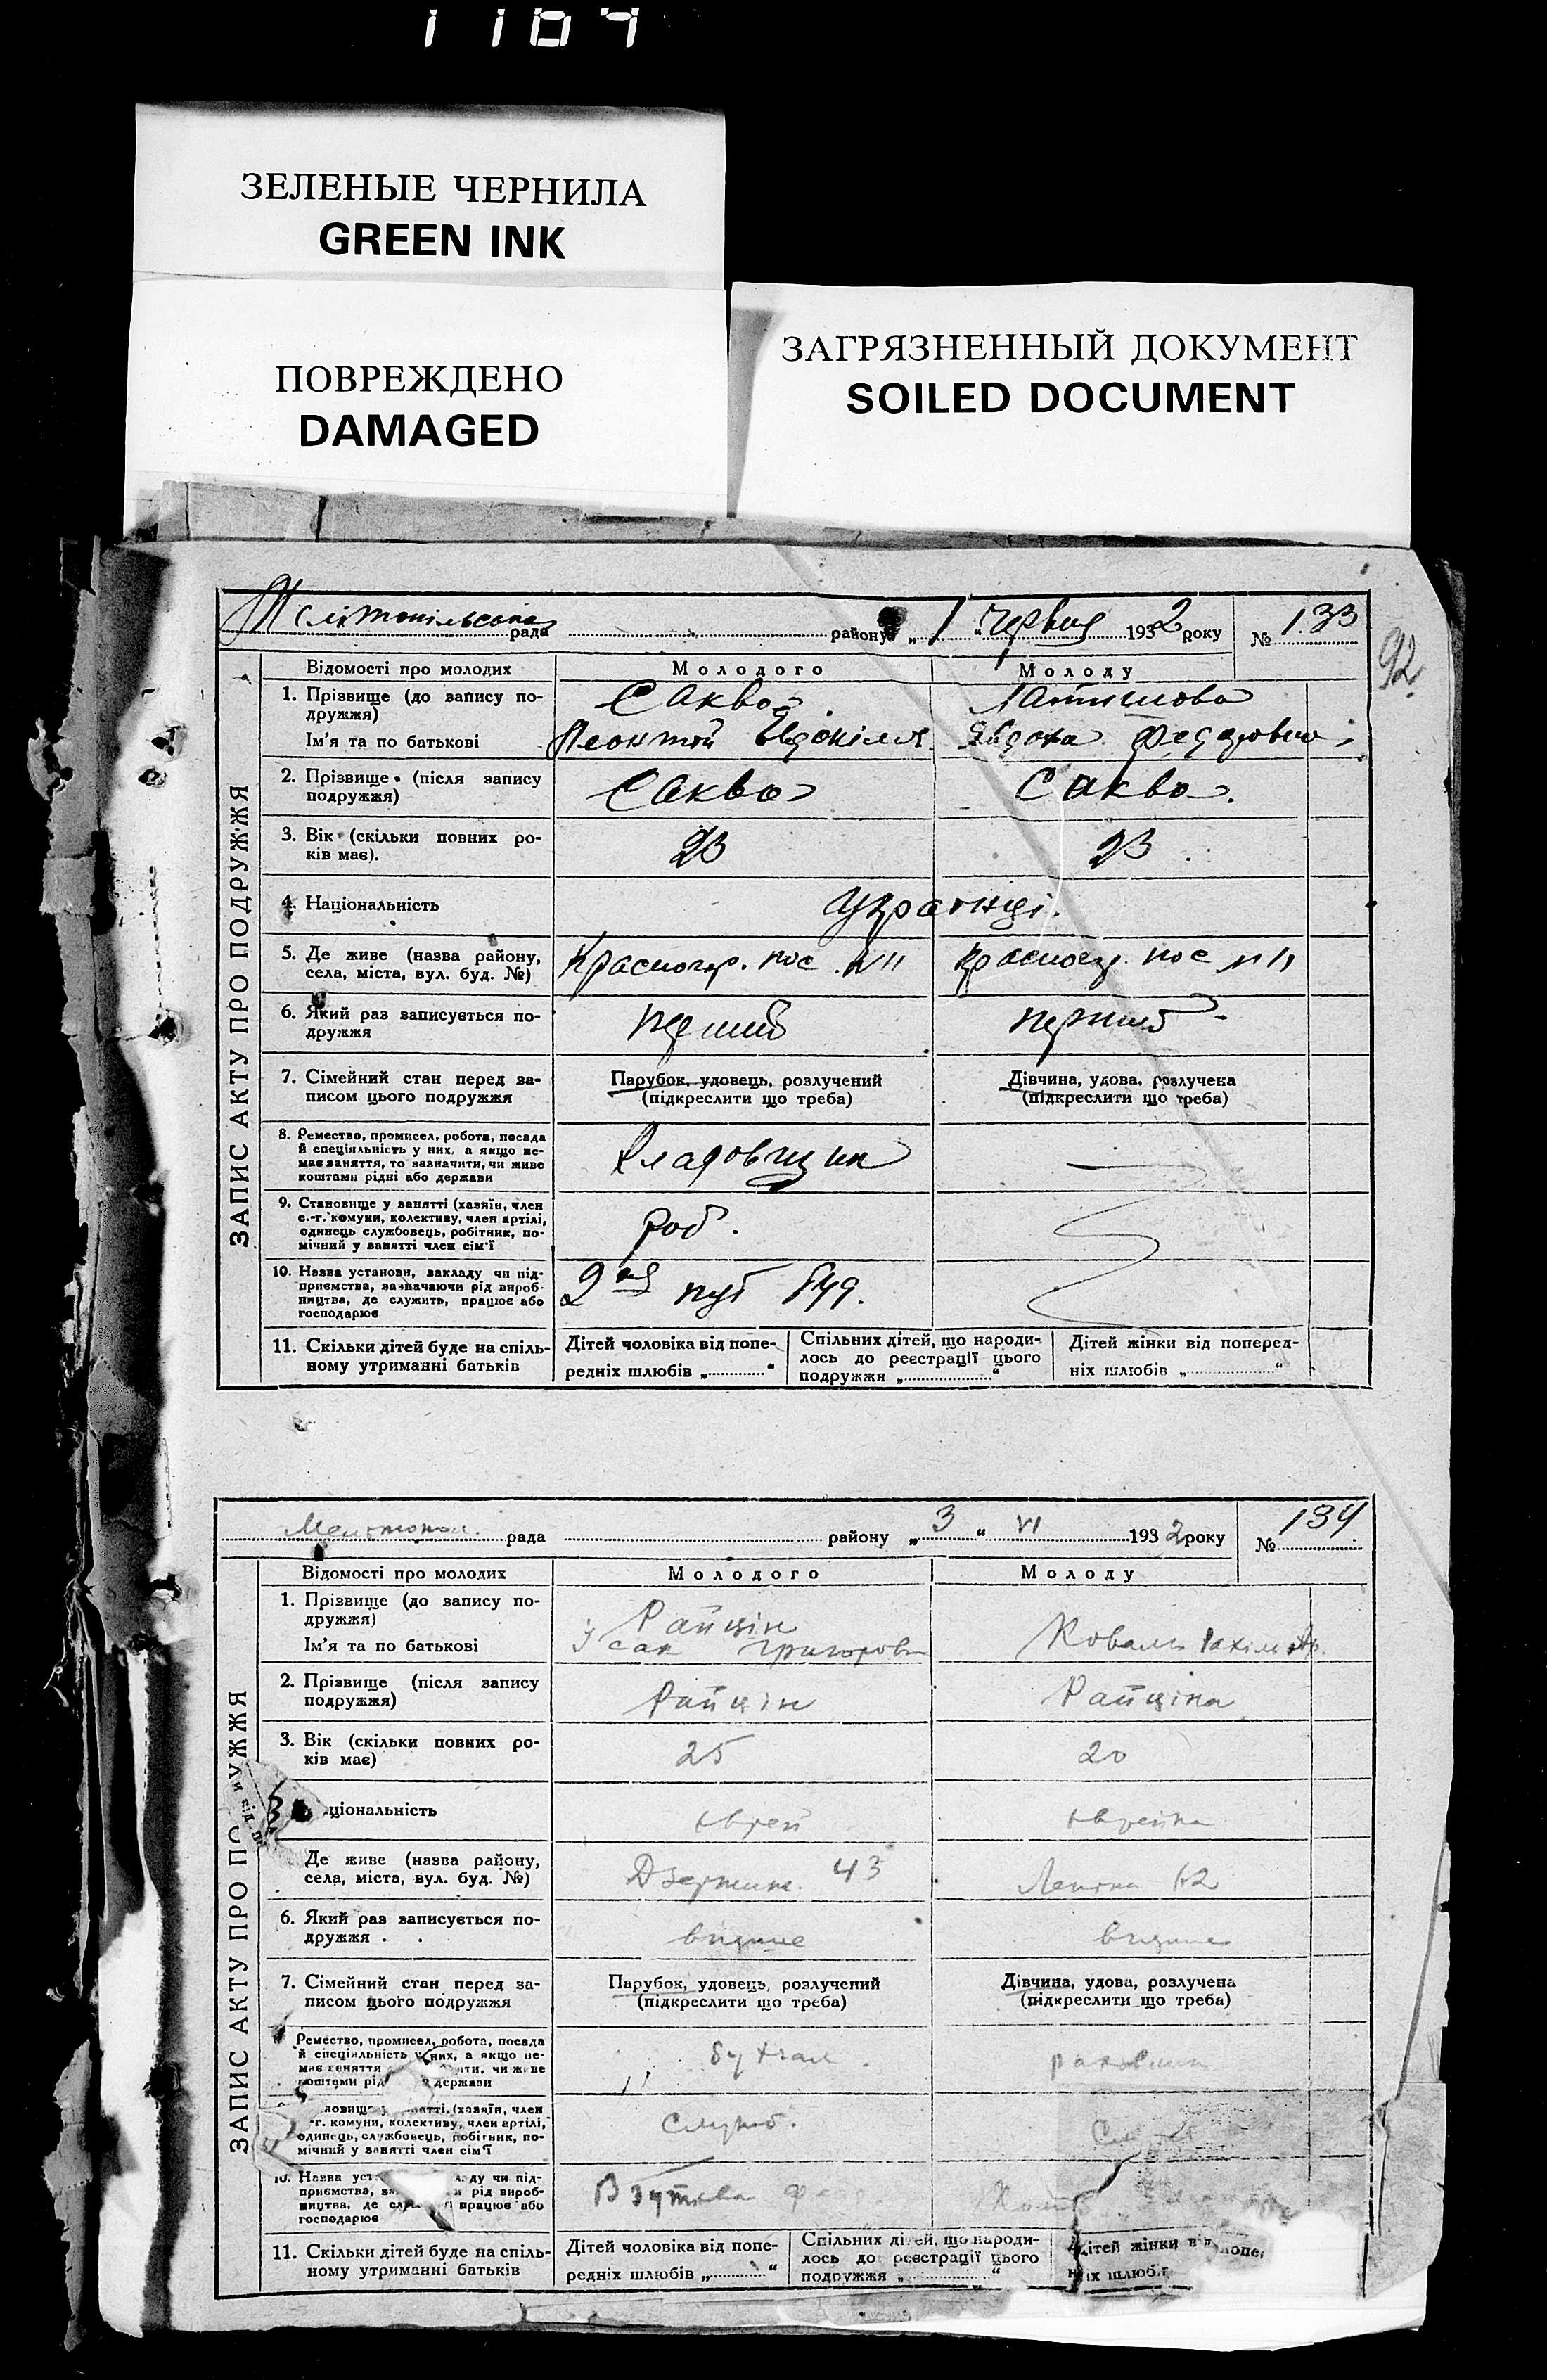 1104
ЗЕЛЕНЫЕ ЧЕРНИЛА
GREEN INK
ПОВРЕЖДЕНО
DAMAGED
ЗАГРЯЗНЕННЫЙ ДОКУМЕНТ
SOILED DOCUMENT
92
Мелітопільська рада району „ 1 “ червня 1932 року № 133
ЗАПИС АКТУ ПРО ПОДРУЖЖЯ
Відомості про молодих Молодого Молоду
1. Прізвище (до запису по-
дружжя) Саква
Ім'я та по батькові Леонтій Федоровна
2. Прізвище (після запису
подружжя) Саква Саква.
3. Вік (скільки повних ро-
ків має). 23 23
4. Національність Українці.
5. Де живе (назва району,
села, міста, вул. буд. №) Красногор. пос. №11 Красногор. пос №11
6. Який раз записується по-
дружжя перший перший
7. Сімейний стан перед за-
писом цього подружжя
Парубок, удовець, розлучений
(підкреслити що треба)
Дівчина, удова, розлучена
(підкреслити що треба)
8. Ремество, промисел, робота, посада
й спеціяльність у них, а якщо не-
має заняття, то зазначити, чи живе
коштами рідні або держави
Кладовщик
9. Становище у занятті (хазяїн, член
с.-г. комуни, колективу, член артілі,
одинець службовець, робітник, по-
мічний у занятті член сім'ї
роб.
10. Назва установи, закладу чи під-
приємства, зазначаючи рід вироб-
ництва, де служить, працює або
господарює
11. Скільки дітей буде на спіль-
ному утриманні батьків
Дітей чоловіка від попе-
редніх шлюбів „ “
Спільних дітей, що народи-
лось до реєстрації цього
подружжя „ “
Дітей жінки від поперед-
ніх шлюбів „ “
Мелітопол. рада району „ 3 “ VI 1932 року № 134
ЗАПИС АКТУ ПРО ПО УЖЖЯ
Відомості про молодих Молодого Молоду
1. Прізвище (до запису по-
дружжя) Райцін
Ім'я та по батькові Ісак Григоров Коваль
2. Прізвище (після запису
подружжя) Райцін Райціна
3. Вік (скільки повних ро-
ків має) 25 20
ціональність єврей єврейка
Де живе (назва району,
села, міста, вул. буд. №) Дзержинс. 43 Леніна
6. Який раз записується по-
дружжя вперше вперше
7. Сімейний стан перед за-
писом цього подружжя
Парубок, удовець, розлучений
(підкреслити що треба)
Дівчина, удова, розлучена
(підкреслити що треба)
Ремество, промисел, робота, посада
й спеціяльність у них, а якщо не-
має заняття чи живе
коштами рід держави
занятті (хазяїн, член
с.-г. комуни, колективу, член артілі,
одинець, службовець, робітник, по-
мічний у занятті член сім'ї
служб.
10. Назва чи під-
приємства, рід вироб-
ництва, де працює або
господарює
11. Скільки дітей буде на спіль-
ному утриманні батьків
Дітей чоловіка від попе-
редніх шлюбів „ “
Спільних дітей, що народи-
лось до реєстрації цього
подружжя „ “
Дітей жінки від попе
ніх шлюб